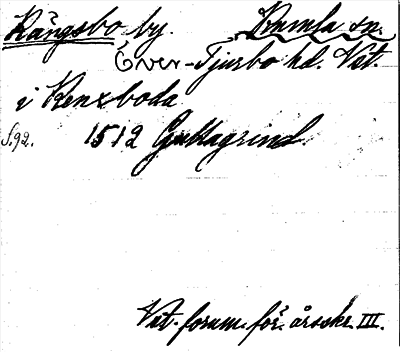 Rångsbo by. Kumla sn.
Över-Tjurbo hd. Vst.
i Renxboda
S.92. 1512 Gullagrind.
Vst. fornm. för. årsskr. III.